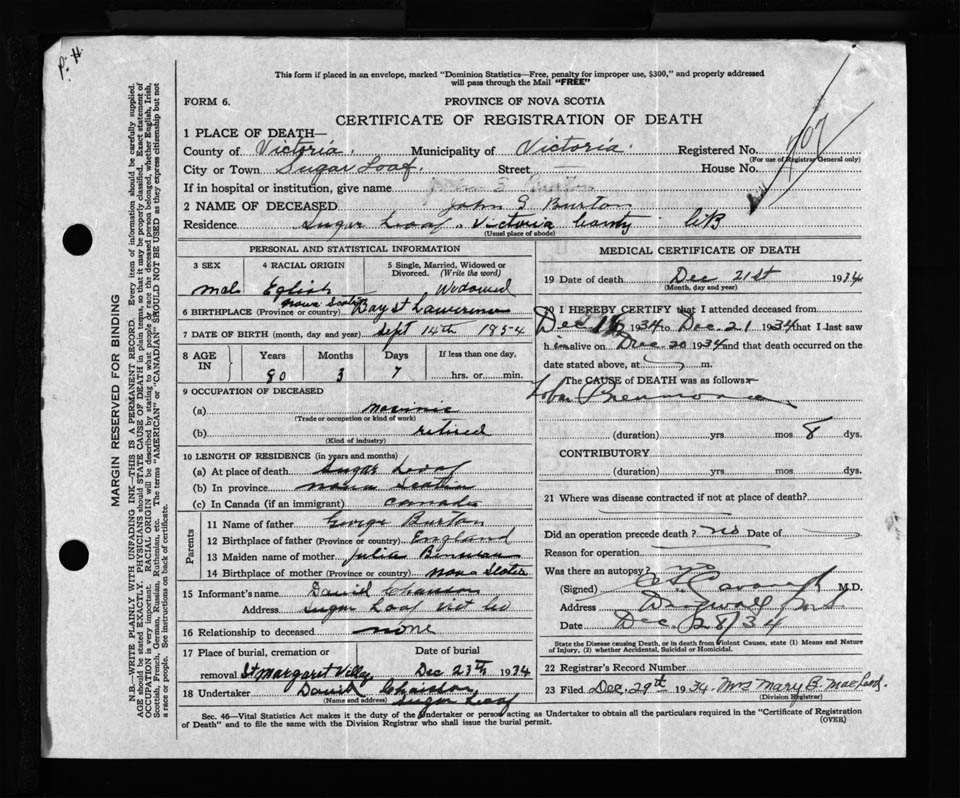 P. H.
This form if placed in an envelope, marked "Dominion Statistics—Free, penalty for improper use, $300," and properly addressed
will pass through the Mail "FREE"
FORM 6.
PROVINCE OF NOVA SCOTIA
CERTIFICATE OF REGISTRATION OF DEATH
707
1 PLACE OF DEATH—
County of Victoria. Municipality of Victoria. Registered No.
(For use of Registrar General only)
City or Town Sugar Loaf. Street House No.
If in hospital or institution, give name
2 NAME OF DECEASED John G Burton
Residence Sugar Loaf, Victoria County CB
(Usual place of abode)
PERSONAL AND STATISTICAL INFORMATION
3 SEX 4 RACIAL ORIGIN 5 Single, Married, Widowed or Divorced. (Write the word)
Male Eglish Widowed
6 BIRTHPLACE (Province or country) Nova Scotia Bay St Lawrence
7 DATE OF BIRTH (month, day and year) Sept 14th 1854
8 AGE IN Years Months Days If less than one day,
80 3 7 hrs. or min.
9 OCCUPATION OF DECEASED
(a)
(Trade or occupation or kind of work)
(b) retired
(Kind of industry)
10 LENGTH OF RESIDENCE (in years and months)
(a) At place of death Sugar Loaf
(b) In province Nova Scotia
(c) In Canada (if an immigrant) Canada
Parents
11 Name of father George Burton
12 Birthplace of father (Province or country) England
13 Maiden name of mother Julia
14 Birthplace of mother (Province or country) Nova Scotia
15 Informant's name Daniel Chaisson
Address Sugar Loaf Vict Co
16 Relationship to deceased none
17 Place of burial, cremation or removal Date of burial
St Margaret Village Dec 23th 1934
18 Undertaker Daniel Chaisson
(Name and address) Sugar Loaf
MEDICAL CERTIFICATE OF DEATH
19 Date of death Dec 21st 1934
(Month, day and year)
20 I HEREBY CERTIFY that I attended deceased from
Dec 1934 to Dec. 21 1934 that I last saw
h alive on Dec 20 1934 and that death occurred on the
date stated above, at m.
The CAUSE OF DEATH was as follows:
Lobar Pneumonia
(duration) yrs. mos 8 dys.
CONTRIBUTORY
(duration) yrs. mos. dys.
21 Where was disease contracted if not at place of death?
Did an operation precede death? no Date of
Reason for operation
Was there an autopsy? no
(Signed) M.D.
Address Dingwall NS
Date Dec. 28/34
State the Disease causing Death, or in death from Violent Causes, state (1) Means and Nature
of Injury, (2) whether Accidental, Suicidal or Homicidal.
22 Registrar's Record Number
23 Filed Dec. 29th 1934. Mrs Mary B. MacLeod
(Division Registrar)
Sec. 46—Vital Statistics Act makes it the duty of the Undertaker or person acting as Undertaker to obtain all the particulars required in the "Certificate of Registration
of Death" and to file the same with the Division Registrar who shall issue the burial permit.
(OVER)
MARGIN RESERVED FOR BINDING
N.B.—WRITE PLAINLY WITH UNFADING INK—THIS IS A PERMANENT RECORD. Every item of information should be carefully supplied.
AGE should be stated EXACTLY. PHYSICIANS should STATE CAUSE OF DEATH in plain terms, so that it may be properly classified. Exact statement of
OCCUPATION is very important. RACIAL ORIGIN will be described by stating to what people or race the deceased person belonged, whether English, Irish,
Scottish, French, German, Russian, Ruthenian, etc. The terms "AMERICAN" or "CANADIAN" SHOULD NOT BE USED as they express citizenship but not
a race or people. See instructions on back of certificate.